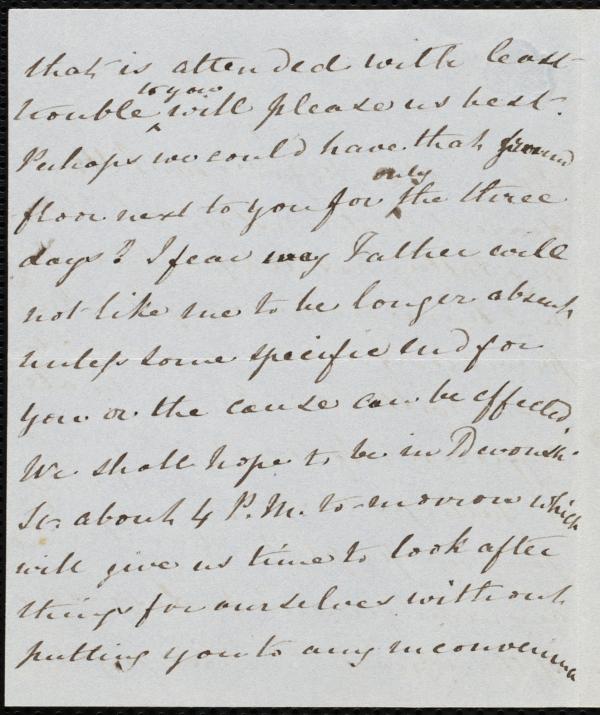 that is attended with least
to your
trouble will please us best.
Perhaps we could have that ground
only
floor next to you for the three
days? I fear my Father will
not like me to be longer absent
unless some specific end for
you or the cause can be effected.
We shall hope to be in Devonsh.
St. about 4 P.M. to-morrow which
will give us time to look after
things for ourselves without
putting you to any inconvenien